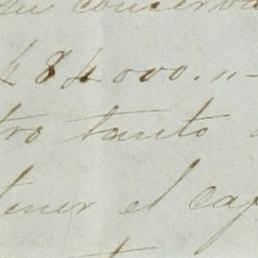 su conserva
484000.n
tro tanto
tener el caf